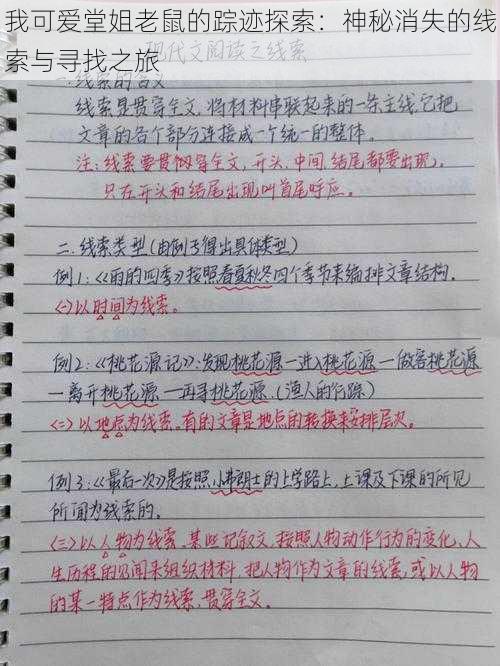 我可爱堂姐老鼠的踪迹探索：神秘消失的线
索与寻找之旅
现代文阅读之线索
一.线索的含义
线索是贯穿全文，将材料串联起来的一条主线，它把
文章的各个部分连接成一个统一的整体。
注：线索要贯穿全文，开头、中间、结尾都要出现，
只在开头和结尾出现叫首尾呼应。
二.线索类型(由例子得出具体类型)
例1：《雨的四季》按照春夏秋冬四个季节来编排文章结构。
(一)以时间为线索。
例2：《桃花源记》：发现桃花源一进入桃花源一做客桃花源
一离开桃花源一再寻桃花源.(渔人的行踪)
(二)以地点为线索，有的文章是地点的转换来安排层次。
例3：《最后一次》是按照小弗朗士的上学路上，上课及下课的所见
所闻为线索的。
(三)以人物为线索，某些记叙文，按照人物动作行为的变化，人
生历程的见闻来组织材料，把人物作为文章的线索，或以人物
的某一特点作为线索，贯穿全文。